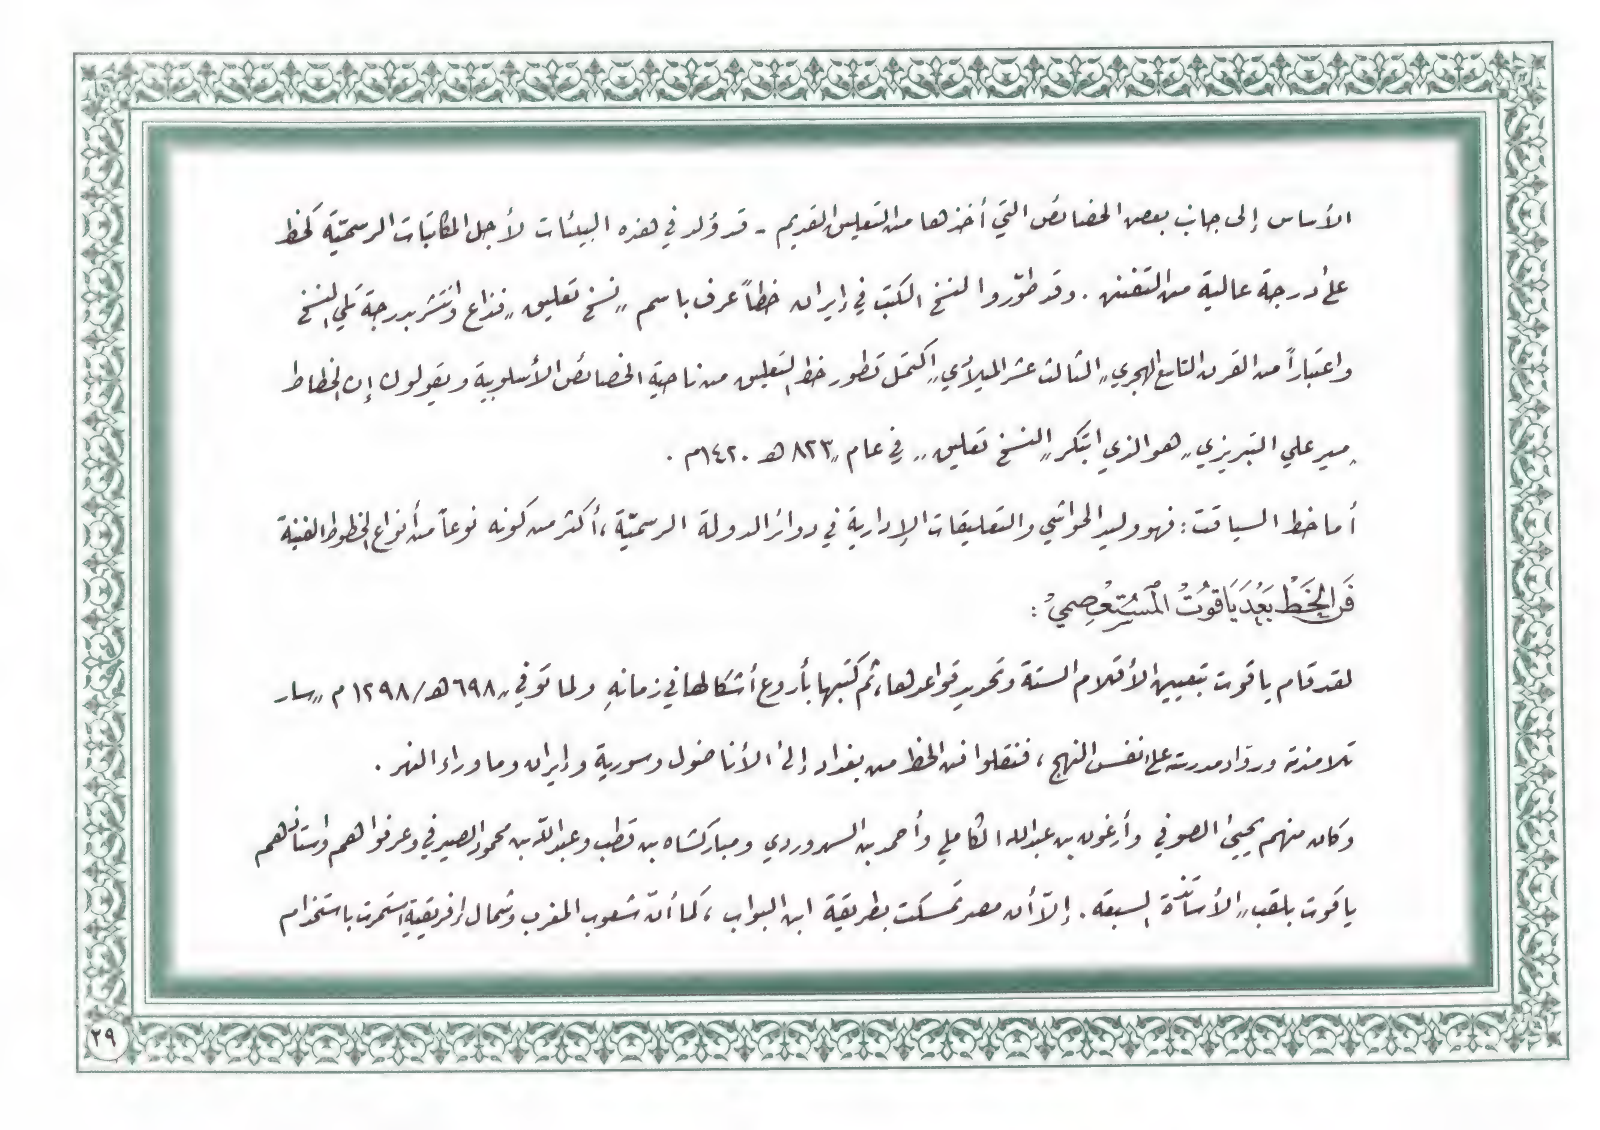 الأساس إلى جانب بعض الخصائص التي أخذها من التعليق القديم - قد وُلد في هذه البيئات لأجل المكاتبات الرسميّة كخط
على درجة عالية من التفنن . وقد طوّروا لنسخ الكتب في إيران خطاً عرف باسم „نسخ تعليق„ فذاع وانتشر بدرجة تلي النسخ
واعتباراً من القرن التاسع الهجري „الثالث عشر الميلادي„ اكتمل تطور خط التعليق من ناحية الخصائص الأسلوبية ويقولون إن الخطاط
„مير علي التبريزي„ هو الذي ابتكر „النسخ تعليق„ في عام „٨٢٣ هـ ١٤٢٠م .
أما خط السياقت : فهو وليد الحواشي والتعليقات الإدارية في دوائر الدولة الرسميّة ، أكثر من كونه نوعاً من أنواع الخطوط الفنية
فَن الخَطْ بَعْدَ يَاقوُتْ المسْتَعْصِمي :
لقد قام ياقوت بتعيين الأقلام الستة وتحديد قواعدها، ثم كتبها بأروع أشكالها في زمانهِ ولما توفي „٦٩٨هـ/١٢٩٨م„ سار
تلامذته وروّاد مدرسته على نفس النهج ، فنقلوا فن الخط من بغداد إلى الأناضول وسورية وإيران وما وراء النهر .
وكان منهم يحيى الصوفي وأرغون بن عبدالله الكاملي وأحمد بن السهروردي ومباركشاه بن قطب وعبدالله بن محمود الصيرفي وعرفوا هم وأستاذهم
ياقوت بلقب „الأساتذة السبعة . إلاّ أن مصر تمسكت بطريقة ابن البواب ، كما أنّ شعوب المغرب وشمال إفريقية استمرت باستخدام
٢٩